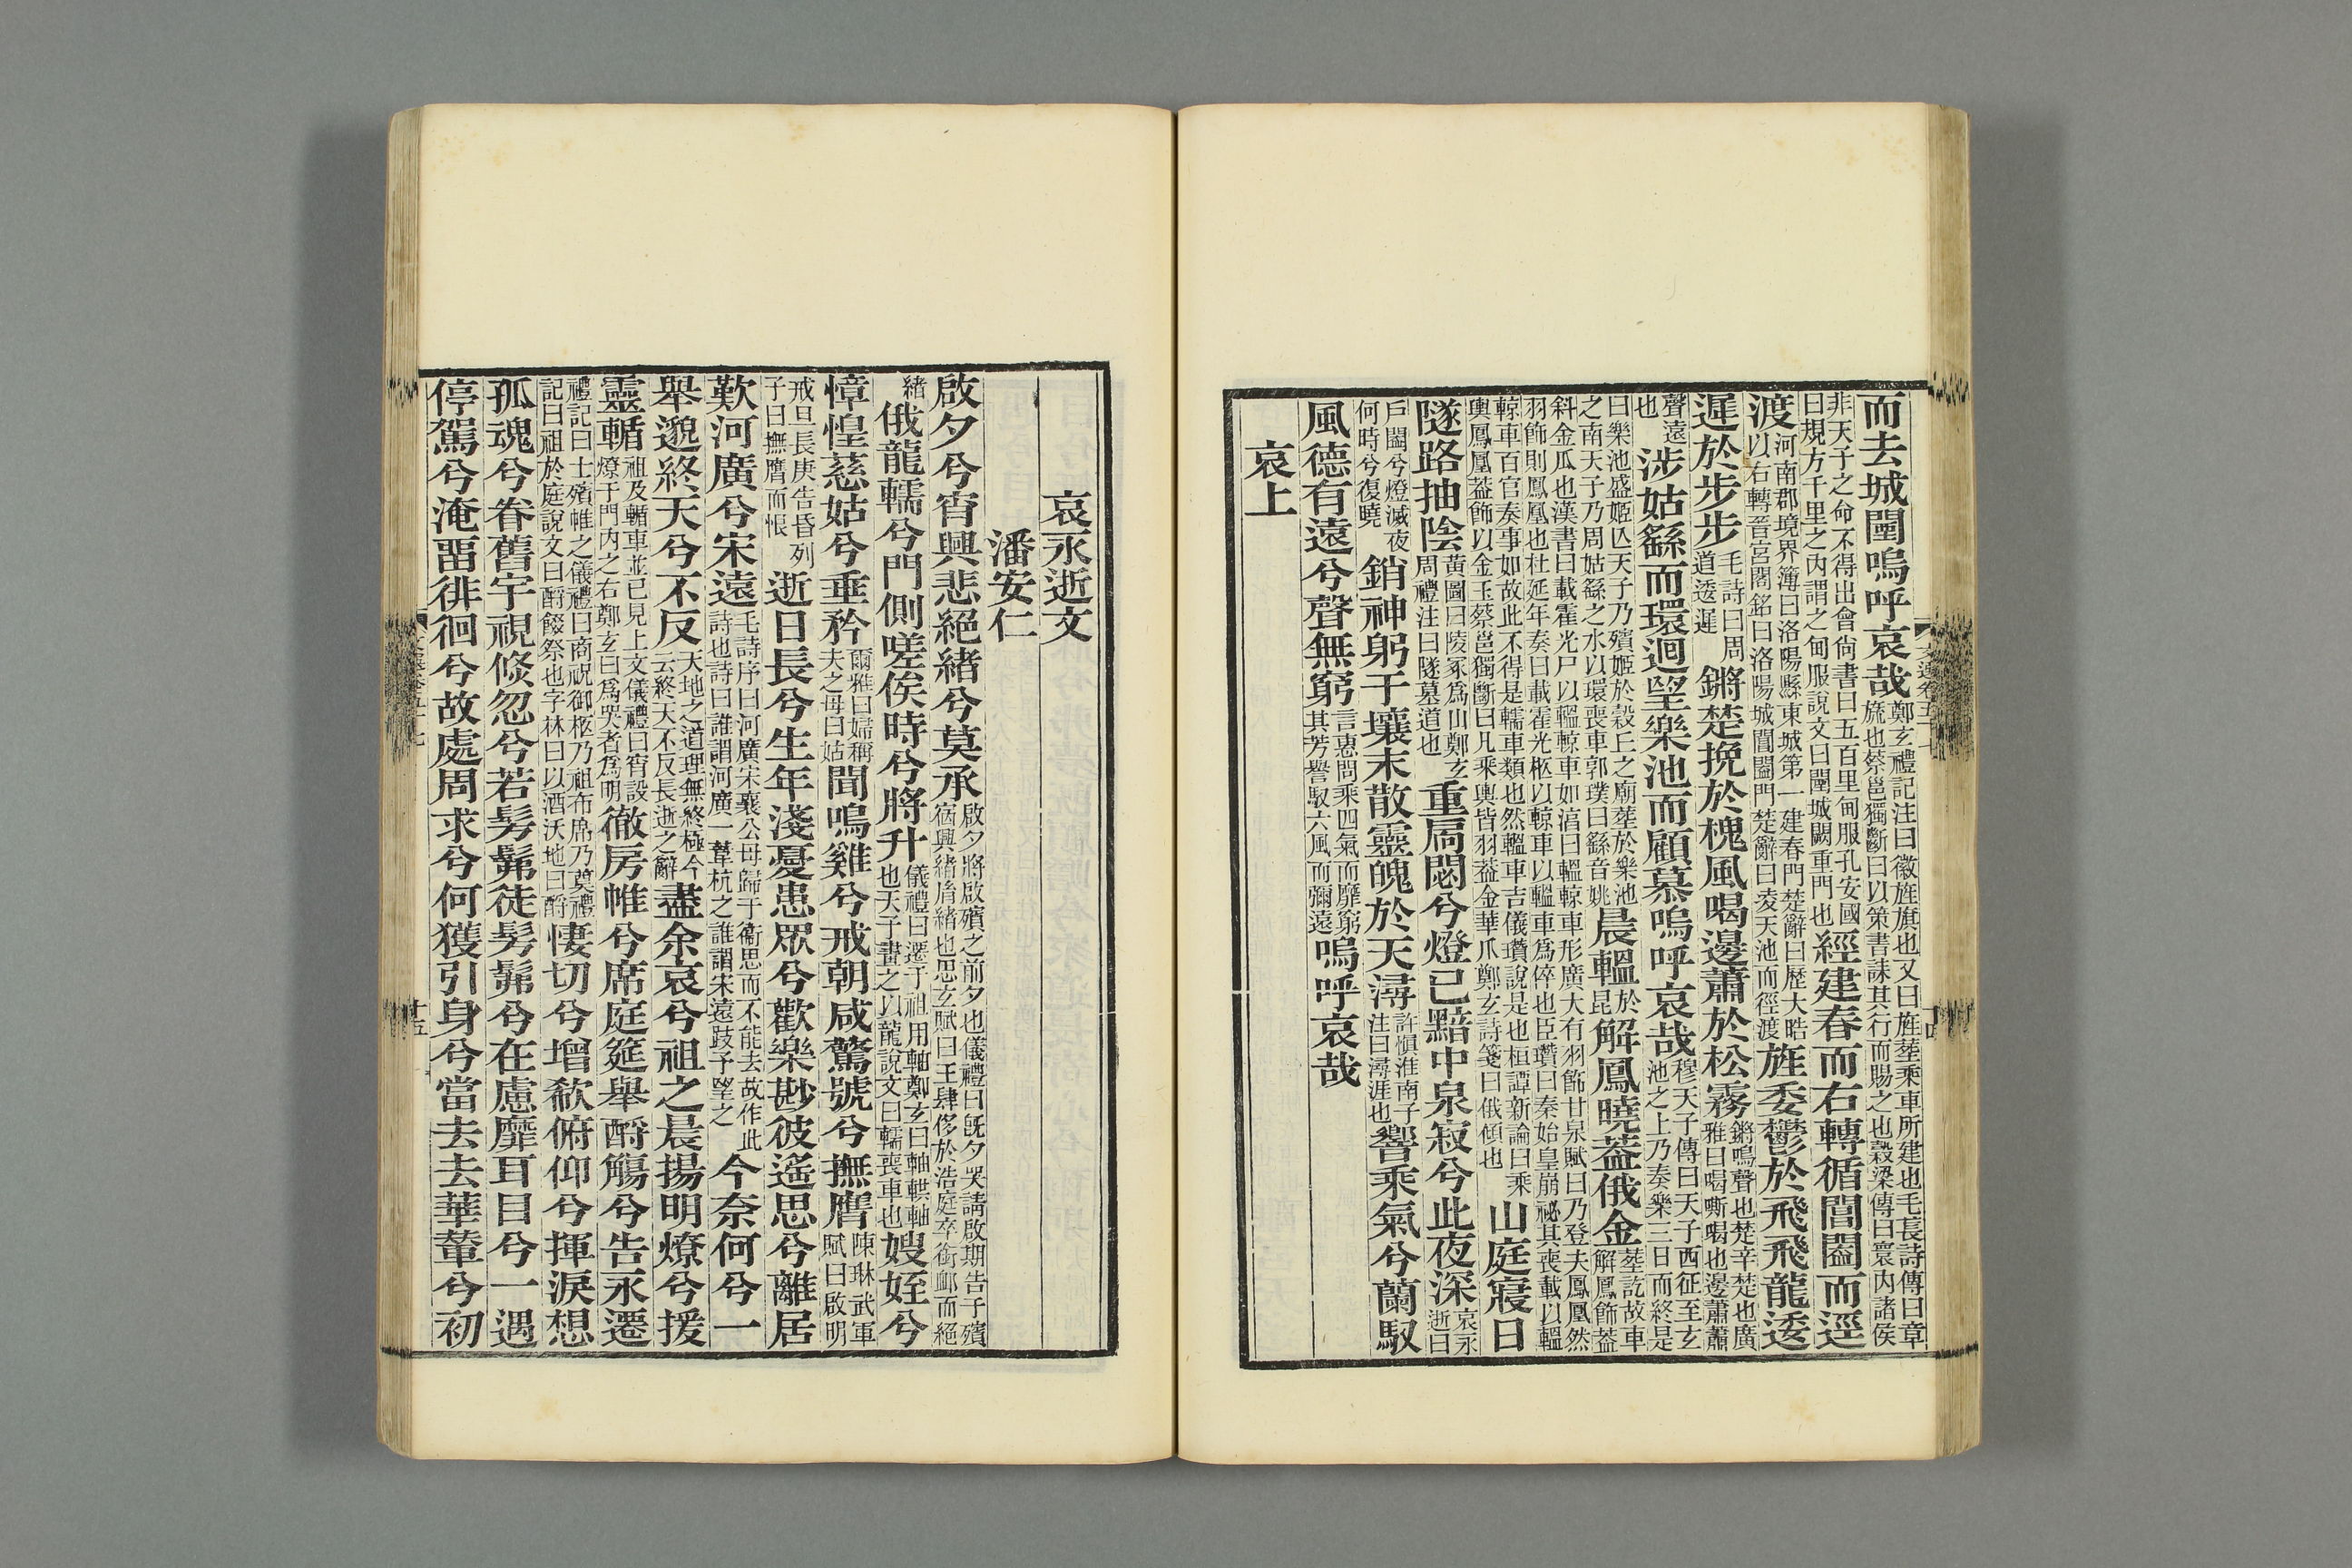 而去城闉嗚呼哀哉鄭玄禮記注曰徽旌旗也又曰旌葬乘車所建也毛萇詩傳曰章
旒也蔡邕獨斷曰以策書誄其行而賜之也穀梁傳曰寰內諸侯
非天子之命不得出會尚書曰五百里甸服孔安國
曰規方千里之內謂之甸服說文曰闉城闕重門也經建春而右轉循閶闔而逕
渡河南郡境界簿曰洛陽縣東城第一建春門楚辭曰歷大皓
以右轉晉宮閣銘曰洛陽城閶闔門楚辭曰凌天池而徑渡旌委鬱於飛飛龍逶
遲於步步毛詩曰周
道逶遲鏘楚挽於槐風喝邊蕭於松霧鏘鳴聲也楚辛楚也廣
雅曰喝嘶喝也邊蕭蕭
聲遠
也涉姑繇而環迴望樂池而顧慕嗚呼哀哉穆天子傳曰天子西征至玄
池之上乃奏樂三日而終是
曰樂池盛姬亾天子乃殯姬於穀丘之廟葬於樂池
之南天子乃周姑繇之水以環喪車郭璞曰繇音姚晨轀於
昆解鳳曉蓋俄金葬訖故車
解鳳飾蓋
斜金瓜也漢書曰載霍光尸以轀輬車如淳曰轀輬車形廣大有羽飾甘泉賦曰乃登夫鳳凰然
羽飾則鳳凰也杜延年奏曰載霍光柩以輬車以轀車為倅也臣瓚曰秦始皇崩祕其喪載以轀
輬車百官奏事如故此不得是轜車類也然轀車吉儀瓚說是也桓譚新論曰乘
輿鳳凰蓋飾以金玉蔡邕獨斷曰凡乘輿皆羽蓋金華爪鄭玄詩箋曰俄傾也山庭寢日
隧路抽陰黃圖曰陵冢為山鄭玄
周禮注曰隧墓道也重扃閟兮燈已黯中泉寂兮此夜深哀永
逝曰
戶闔兮燈滅夜
何時兮復曉銷神躬于壤末散靈魄於天潯許慎淮南子
注曰潯涯也響乘氣兮蘭馭
風德有遠兮聲無窮言惠問乘四氣而靡窮
其芳譽馭六風而彌遠嗚呼哀哉
哀上
哀永逝文
潘安仁
啟夕兮宵興悲絕緒兮莫承啟夕將啟殯之前夕也儀禮曰旣夕哭請啟期告于殯
宿興緒胤緒也思玄賦曰王肆侈於漢庭卒銜卹而絕
緒俄龍轜兮門側嗟俟時兮將升儀禮曰遷于祖用軸鄭玄曰軸輁軸
也天子畫之以龍說文曰轜喪車也嫂姪兮
慞惶慈姑兮垂矜爾雅曰婦稱
夫之母曰姑聞鳴雞兮戒朝咸驚號兮撫膺陳琳武軍
賦曰啟明
戒旦長庚告昏列
子曰撫膺而恨逝日長兮生年淺憂患眾兮歡樂尠彼遙思兮離居
歎河廣兮宋遠毛詩序曰河廣宋襄公母歸于衛思而不能去故作此
詩也詩曰誰謂河廣一葦杭之誰謂宋遠跂予望之今奈何兮一
舉邈終天兮不反天地之道理無終極今
云終天不反長逝之辭盡余哀兮祖之晨揚明燎兮援
靈輴祖及輴車並已見上文儀禮曰宵設
燎于門內之右鄭玄曰為哭者為明徹房帷兮席庭筵舉酹觴兮告永遷
禮記曰士殯帷之儀禮曰商祝御柩乃祖布席乃奠禮
記曰祖於庭說文曰酹餟祭也字林曰以酒沃地曰酹悽切兮增欷俯仰兮揮淚想
孤魂兮眷舊宇視倏忽兮若髣髴徒髣髴兮在慮靡耳目兮一遇
停駕兮淹畱徘徊兮故處周求兮何獲引身兮當去去華輦兮初